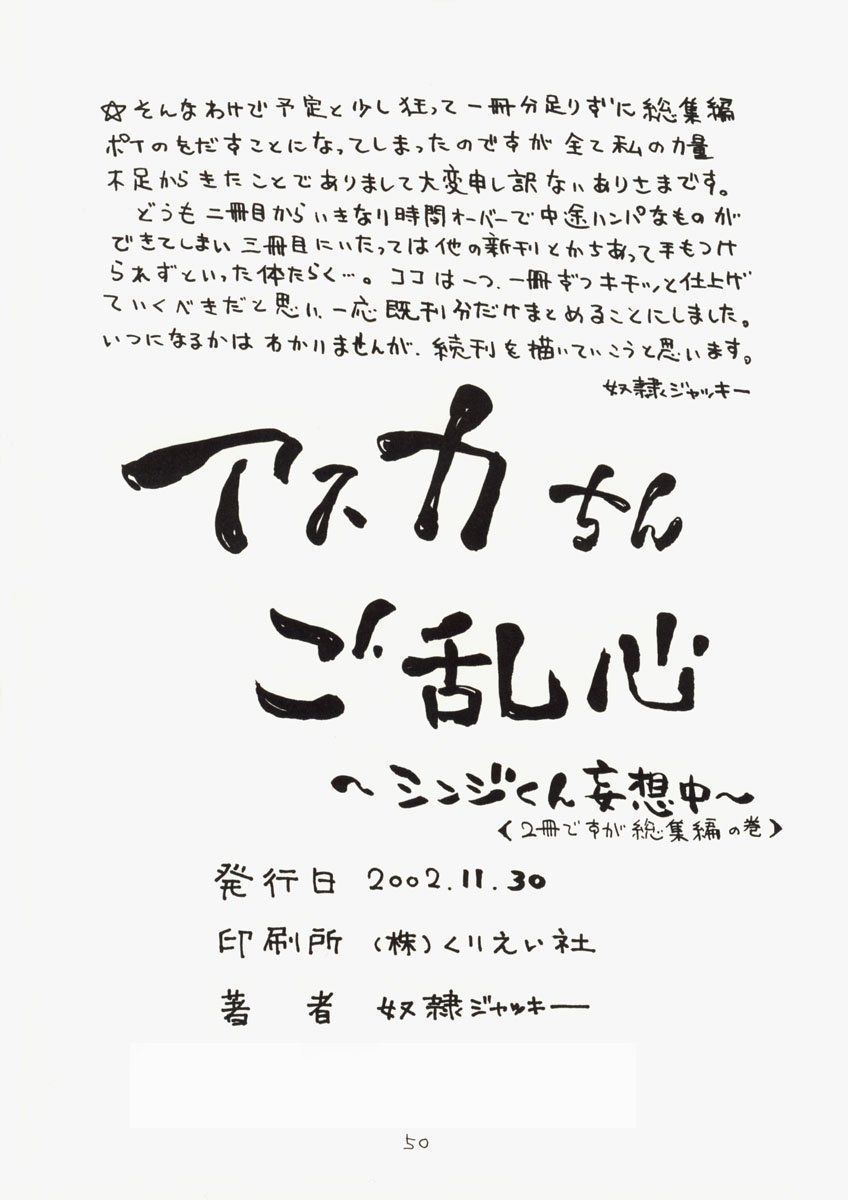 ☆そんなわけで予定と少し狂って一冊分足りずに総集編
ポイのをだすことになってしまったのですが全て私の力量
不足からきたことでありまして大変申し訳ないありさまです。
どうも二冊目からいきなり時間オーバーで中途ハンパなものが
できてしまい三冊目にいたっては他の新刊とかちあって手もつけ
られずといった体たらく…。ココは一つ、一冊ずつキチッと仕上げ
ていくべきだと思い、一応既刊分だけまとめることにしました。
いつになるかはわかりませんが、続刊を描いていこうと思います。
奴隷ジャッキー
アスカちん
ご乱心
〜シンジくん妄想中〜
《2冊ですが総集編の巻》
発行日 2002.11.30
印刷所 (株)くりえい社
著者 奴隷ジャッキー
50